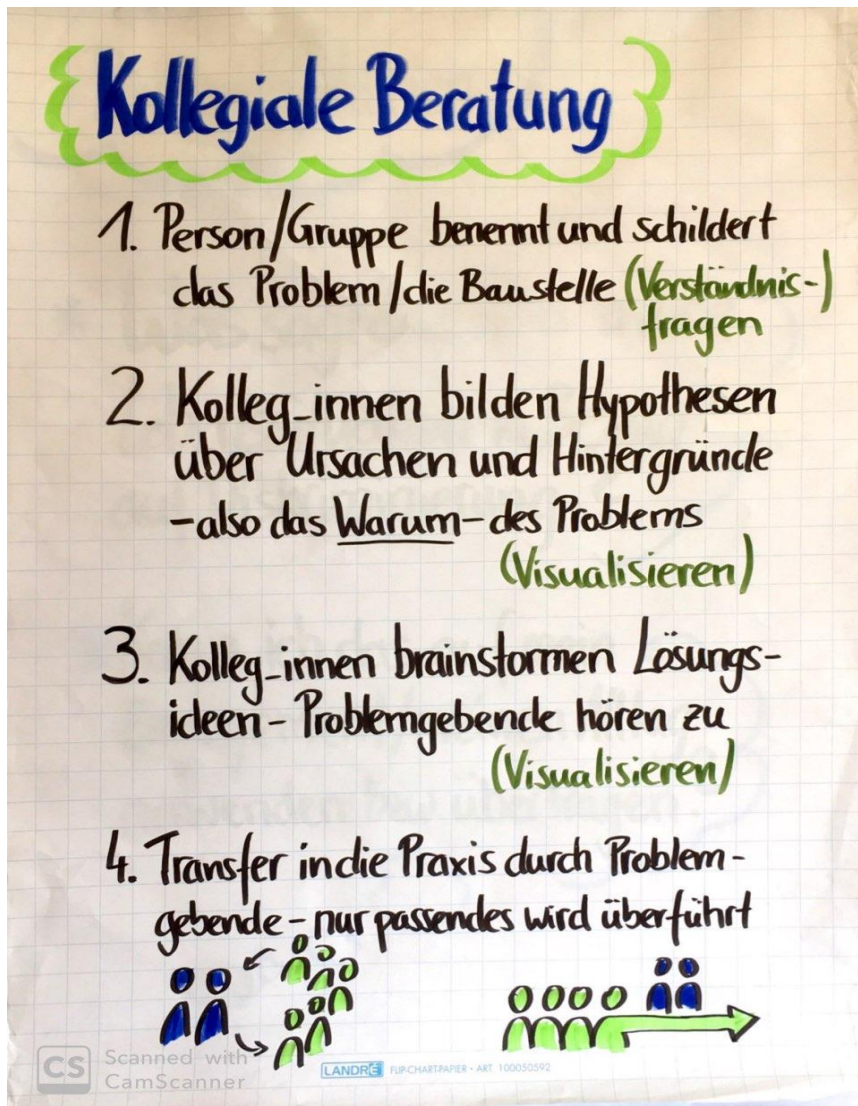 Kollegiale Beratung
1. Person/Gruppe benennt und schildert
das Problem/die Baustelle (Verständnis-)
fragen
2. Kolleg_innen bilden Hypothesen
über Ursachen und Hintergründe
-also das Warum- des Problems
(Visualisieren)
3. Kolleg_innen brainstormen Lösungs-
ideen - Problemgebende hören zu
(Visualisieren)
4. Transfer in die Praxis durch Problem-
gebende - nur passendes wird überführt
CS Scanned with
CamScanner
LANDRÉ FLIP-CHART-PAPIER • ART. 100050592